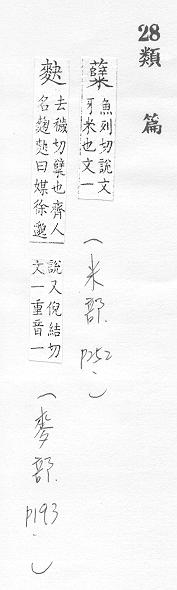 28 類篇
糵 魚列切說文
牙米也文一
(米部. p252.)
去穢切糵也齊人
名麴 曰媒徐邈
說又倪結切
文一重音一
(麥部. p193.)